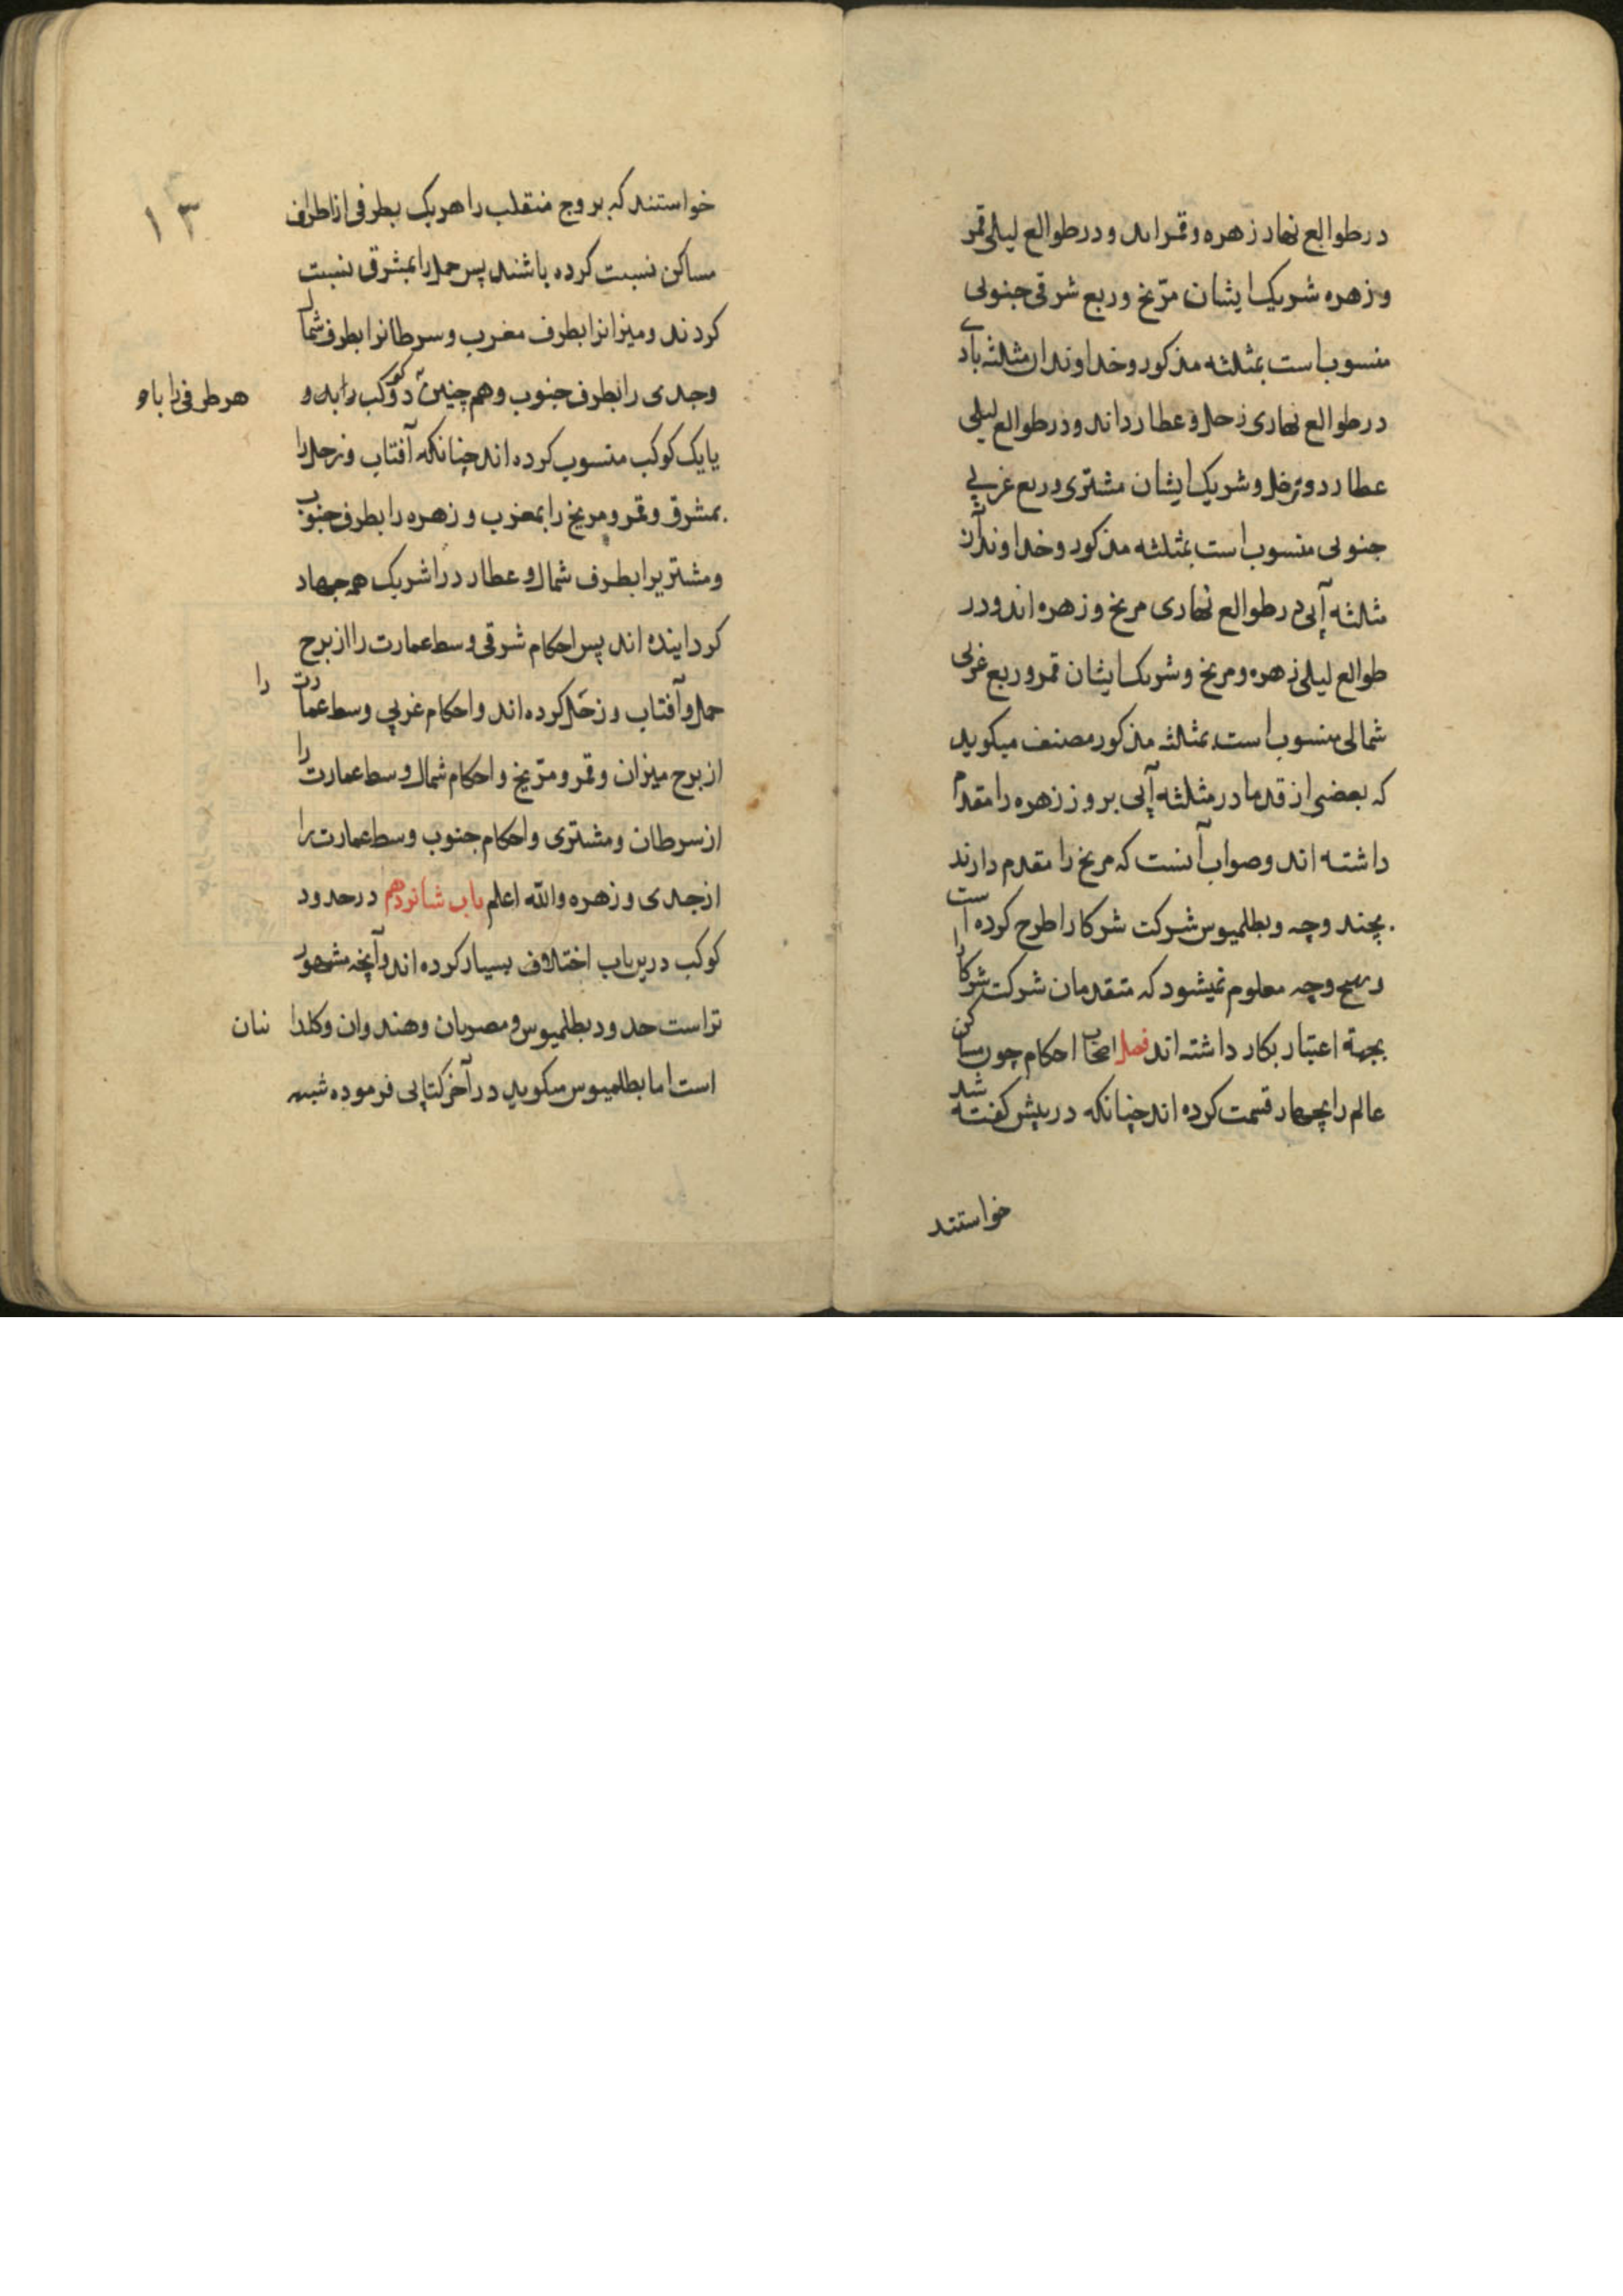 در طوالع نهار زهره و قمر اند و در طوالع لیلی قمر
و زهره شریک ایشان مرّیخ و ربع شرقی جنوبی
منسوب است بمثلثه مذکور و خداوندان مثلثه بادی
در طوالع نهاری زحل و عطارد اند و در طوالع لیلی
عطارد و زحل و شریک ایشان مشتری و ربع غربی
جنوبی منسوب است بمثلثه مذکور و خداوندان
مثلثه آبی در طوالع نهاری مریخ و زهره اند و در
طوالع لیلی زهره و مریخ و شریک ایشان قمر و ربع غربی
شمالی منسوب است بمثلثه مذکور مصنف میکوید
که بعضی از قدما در مثلثه آبی بروز زهره را مقدم
داشته اند و صواب آنست که مریخ را مقدم دارند
بچند وجه و بطلمیوس شرکت شرکا را طرح کرده است
و هیچ وجه معلوم نمیشود که متقدمان شرکت شرکا را
بجهة اعتبار بکار داشته اند فصل اصحاب احکام چون مساکن
عالم را بچهار قسمت کرده اند چنانکه در پیش کفته شد
خواستند
۱۳
خواستند که بروج منقلب را هریک بطرفی از اطراف
مساکن نسبت کرده باشند پس حمل را بمشرق نسبت
کردند و میزانرا بطرف مغرب و سرطانرا بطرف شمال
وجدی را بطرف جنوب و همچنین دو کوکب را بدو
هر طرفی را با دو
یا یک کوکب منسوب کرده اند چنانکه آفتاب و زحل را
بمشرق و قمر و مریخ را بمغرب و زهره را بطرف جنوب
و مشتریرا بطرف شمال و عطارد را شریک همه چهار
کرداینده اند پس احکام شرقی وسط عمارت را از برج
حمل و آفتاب و زحل کرده اند و احکام غربی وسط عمارت را
از برج میزان و قمر و مرّیخ و احکام شمال وسط عمارت را
از سرطان و مشتری و احکام جنوب وسط عمارت را
از جدی و زهره والله اعلم باب شانزدهم در حدود
کوکب درین باب اختلاف بسیار کرده اند و آنچه مشهور
تر است حدود بطلمیوس و مصریان و هندوان و کلدا نیان
است اما بطلمیوس میکوید در آخر کتابی فرموده شبیه